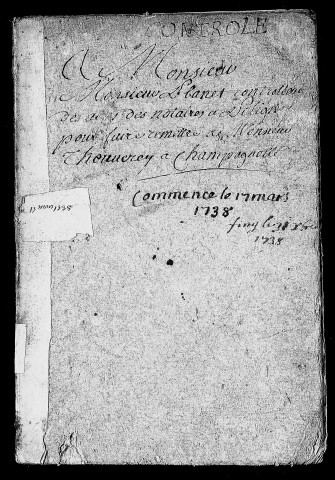 CONTROLE
A Monsieur
Monsieur Blanet controlleur
des actes des notaires a
pour faire remettre a Monsieur
Thouverey a Champagnolle
Commence le 17 mars
1738
finy le 31 Xbre
1738